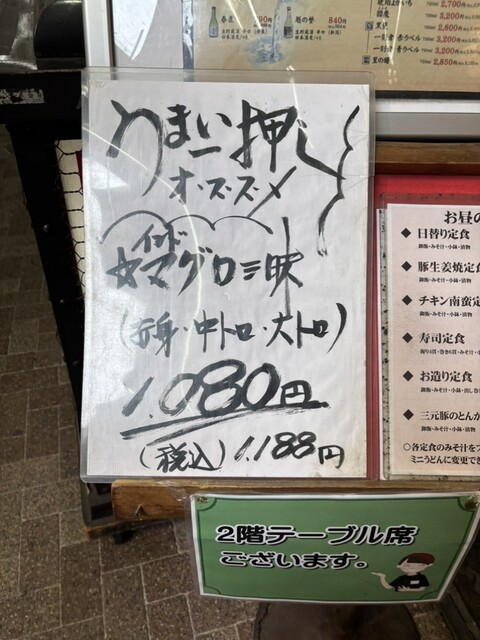 うまい一押し
オススメ
インド
☆マグロ三昧
(赤身・中トロ・大トロ)
1,080円
(税込)1,188円
2階テーブル席
ございます。
お昼の
◆ 日替り定食
御飯・みそ汁・小鉢・漬物
◆ 豚生姜焼定食
御飯・みそ汁・小鉢・漬物
◆ チキン南蛮定
御飯・みそ汁・小鉢・漬物
◆ 寿司定食
◆ お造り定食
◆ 三元豚のとんか
御飯・みそ汁・小鉢・漬物
○各定食のみそ汁をプ
ミニうどんに変更でき
840円
2,700円
3,200円
2,600円
一刻者 赤ラベル
3,200円
2,850円